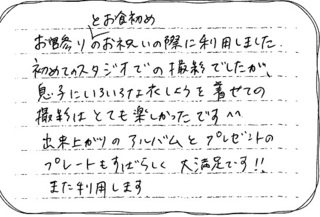 とお食い初め
お宮参りのお祝いの際に利用しました.
初めてのスタジオでの撮影でしたが、
息子にいろいろな衣しょうを着せての
撮影はとても楽しかったです^^
出来上がりのアルバムとプレゼントの
プレートもすばらしく 大満足です!!
また利用します